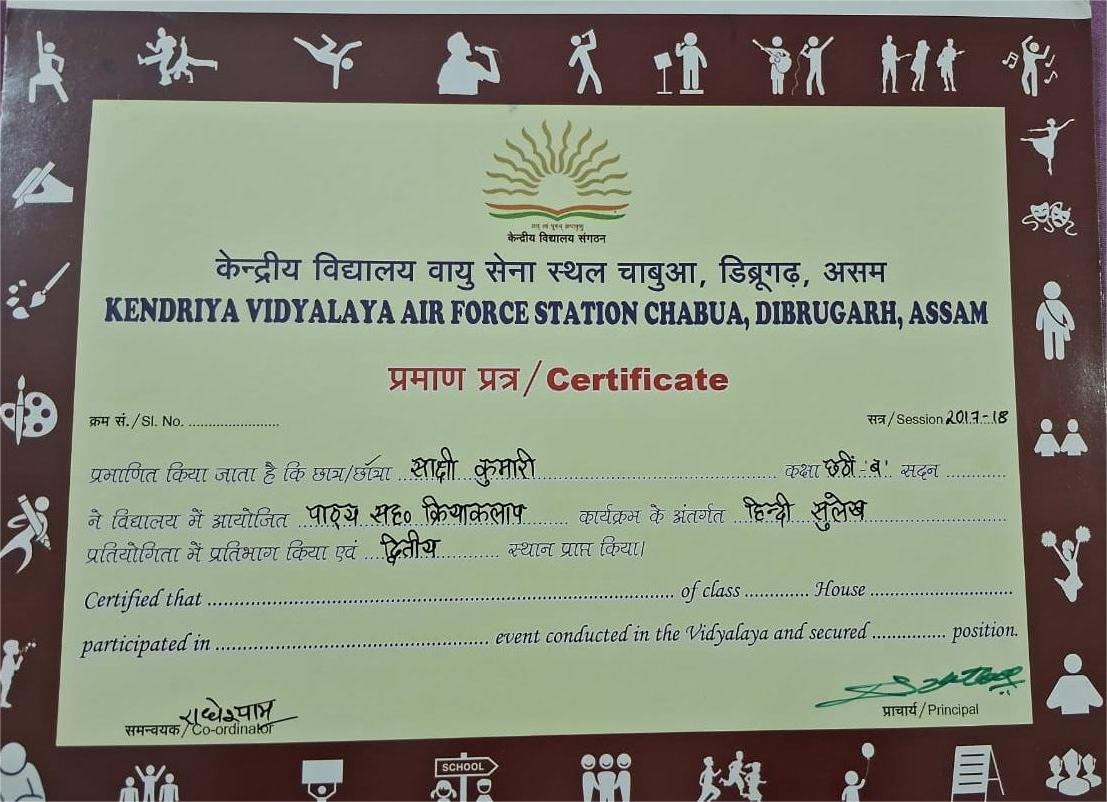 तत् त्वं पूषन् अपावृणु
केन्द्रीय विद्यालय संगठन
केन्द्रीय विद्यालय वायु सेना स्थल चाबुआ, डिब्रूगढ़, असम
KENDRIYA VIDYALAYA AIR FORCE STATION CHABUA, DIBRUGARH, ASSAM
प्रमाण प्रत्र / Certificate
क्रम सं./Sl. No. ........................... सत्र/Session 2017-18
प्रमाणित किया जाता है कि छात्र/छात्रा साक्षी कुमारी कक्षा छठीं 'ब' सदन ..............
ने विद्यालय में आयोजित पाठ्य सह० क्रियाकलाप कार्यक्रम के अंतर्गत हिन्दी सुलेख
प्रतियोगिता में प्रतिभाग किया एवं द्वितीय स्थान प्राप्त किया।
Certified that .................................................. of class ............ House ..........................
participated in .................................................. event conducted in the Vidyalaya and secured .............. position.
राधेश्याम
समन्वयक/Co-ordinator प्राचार्य/Principal
SCHOOL